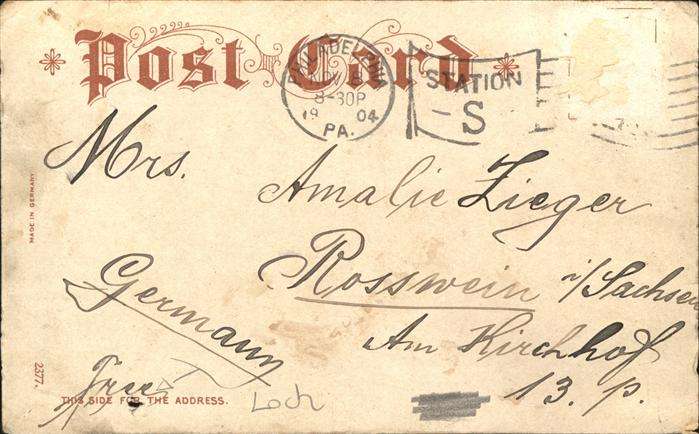 Post Card
PHILADELPHIA
8-30P
19 04
PA.
STATION
S
MADE IN GERMANY
Mrs.
Amalie Zieger
Rosswein i/Sachsen
Germany
Am Kirchhof
13. p.
Free
2377.
THIS SIDE FOR THE ADDRESS.
Loch